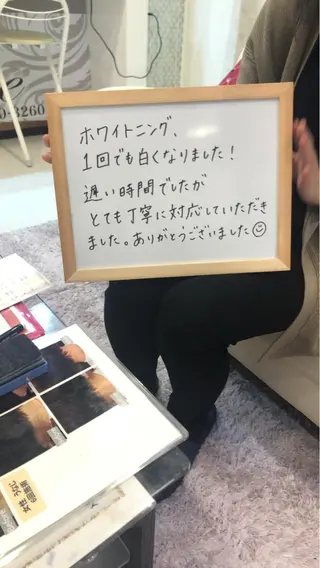 0-3260
ホワイトニング、
1回でも白くなりました!
遅い時間でしたが
とても丁寧に対応していただき
ました。ありがとうございました
女性・ヒゲ
6回施術